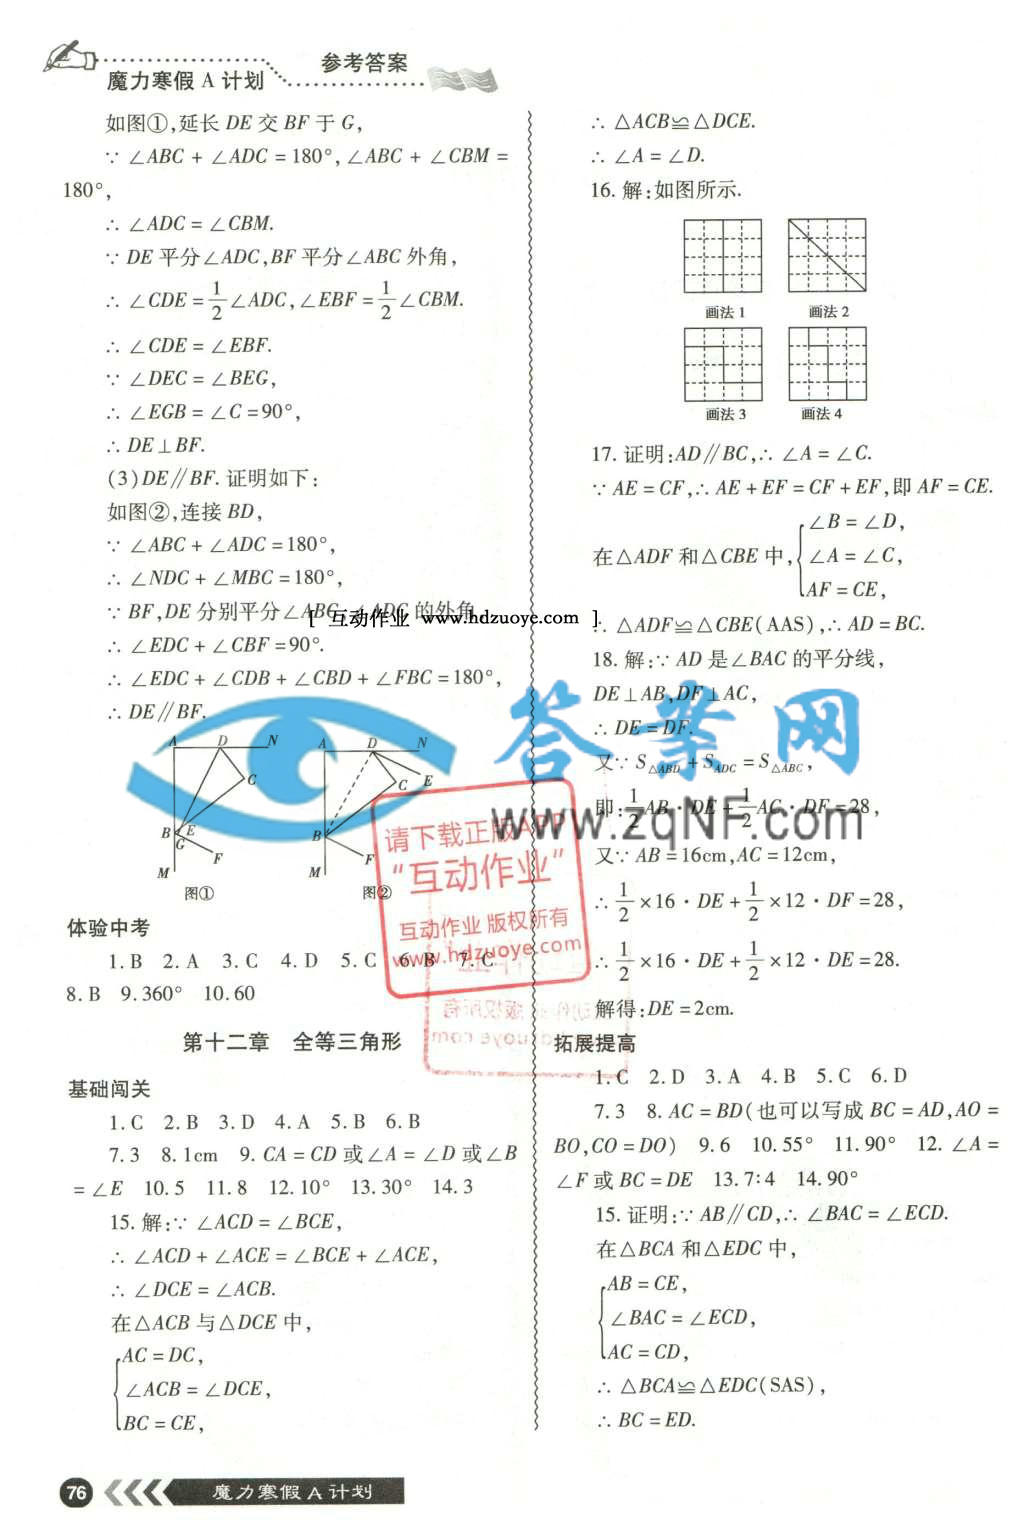 参考答案
魔力寒假 A 计划
如图①,延长 DE 交 BF 于 G,
∵ ∠ABC + ∠ADC = 180°, ∠ABC + ∠CBM =
180°,
∴ ∠ADC = ∠CBM.
∵ DE 平分∠ADC, BF 平分∠ABC 外角,
∴ ∠CDE = 1/2 ∠ADC, ∠EBF = 1/2 ∠CBM.
∴ ∠CDE = ∠EBF.
∵ ∠DEC = ∠BEG,
∴ ∠EGB = ∠C = 90°,
∴ DE⊥BF.
(3) DE∥BF. 证明如下:
如图②,连接 BD,
∵ ∠ABC + ∠ADC = 180°,
∴ ∠NDC + ∠MBC = 180°,
∵ BF, DE 分别平分∠ABC、∠ADC 的外角
[ 互动作业 www.hdzuoye.com ].
∴ ∠EDC + ∠CBF = 90°.
∴ ∠EDC + ∠CDB + ∠CBD + ∠FBC = 180°,
∴ DE∥BF.
A D N C B E G F M
图①
A D N E C B F M
图②
体验中考
1. B 2. A 3. C 4. D 5. C 6. B 7. C
8. B 9. 360° 10. 60
第十二章 全等三角形
基础闯关
1. C 2. B 3. D 4. A 5. B 6. B
7. 3 8. 1cm 9. CA = CD 或∠A = ∠D 或∠B
= ∠E 10. 5 11. 8 12. 10° 13. 30° 14. 3
15. 解:∵ ∠ACD = ∠BCE,
∴ ∠ACD + ∠ACE = ∠BCE + ∠ACE,
∴ ∠DCE = ∠ACB.
在△ACB 与△DCE 中,
AC = DC,
∠ACB = ∠DCE,
BC = CE,
∴ △ACB≌△DCE.
∴ ∠A = ∠D.
16. 解:如图所示.
画法 1 画法 2
画法 3 画法 4
17. 证明:AD∥BC,∴ ∠A = ∠C.
∵ AE = CF,∴ AE + EF = CF + EF,即 AF = CE.
在△ADF 和△CBE 中,
∠B = ∠D,
∠A = ∠C,
AF = CE,
∴ △ADF≌△CBE(AAS),∴ AD = BC.
18. 解:∵ AD 是∠BAC 的平分线,
DE⊥AB, DF⊥AC,
∴ DE = DF.
又∵ S△ABD + SADC = S△ABC,
即: 1/2 AB · DE + 1/2 AC · DF = 28,
又∵ AB = 16cm, AC = 12cm,
∴ 1/2 ×16 · DE + 1/2 ×12 · DF = 28,
∴ 1/2 ×16 · DE + 1/2 ×12 · DE = 28.
解得: DE = 2cm.
拓展提高
1. C 2. D 3. A 4. B 5. C 6. D
7. 3 8. AC = BD(也可以写成 BC = AD, AO =
BO, CO = DO) 9. 6 10. 55° 11. 90° 12. ∠A =
∠F 或 BC = DE 13. 7:4 14. 90°
15. 证明:∵ AB∥CD,∴ ∠BAC = ∠ECD.
在△BCA 和△EDC 中,
AB = CE,
∠BAC = ∠ECD,
AC = CD,
∴ △BCA≌△EDC(SAS),
∴ BC = ED.
答案网
www.zqNF.com
请下载正版APP
“互动作业”
互动作业 版权所有
www.hdzuoye.com
76 魔力寒假 A 计划